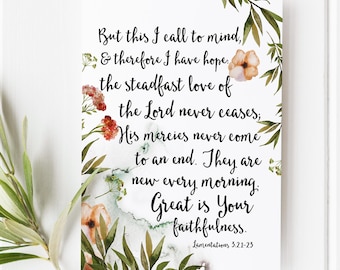 But this I call to mind,
& therefore I have hope:
the steadfast love of
the Lord never ceases;
His mercies never come
to an end. They are
new every morning;
Great is Your
faithfulness.
Lamentations 3:21-23